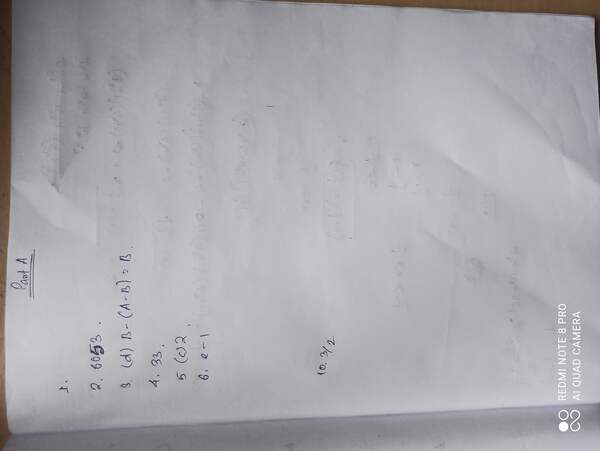 Part A
1.
2. 6053.
3. (d) B-(A-B) = B.
4. 33.
5 (c) 2.
6. e-1
10. 3/2
REDMI NOTE 8 PRO
AI QUAD CAMERA